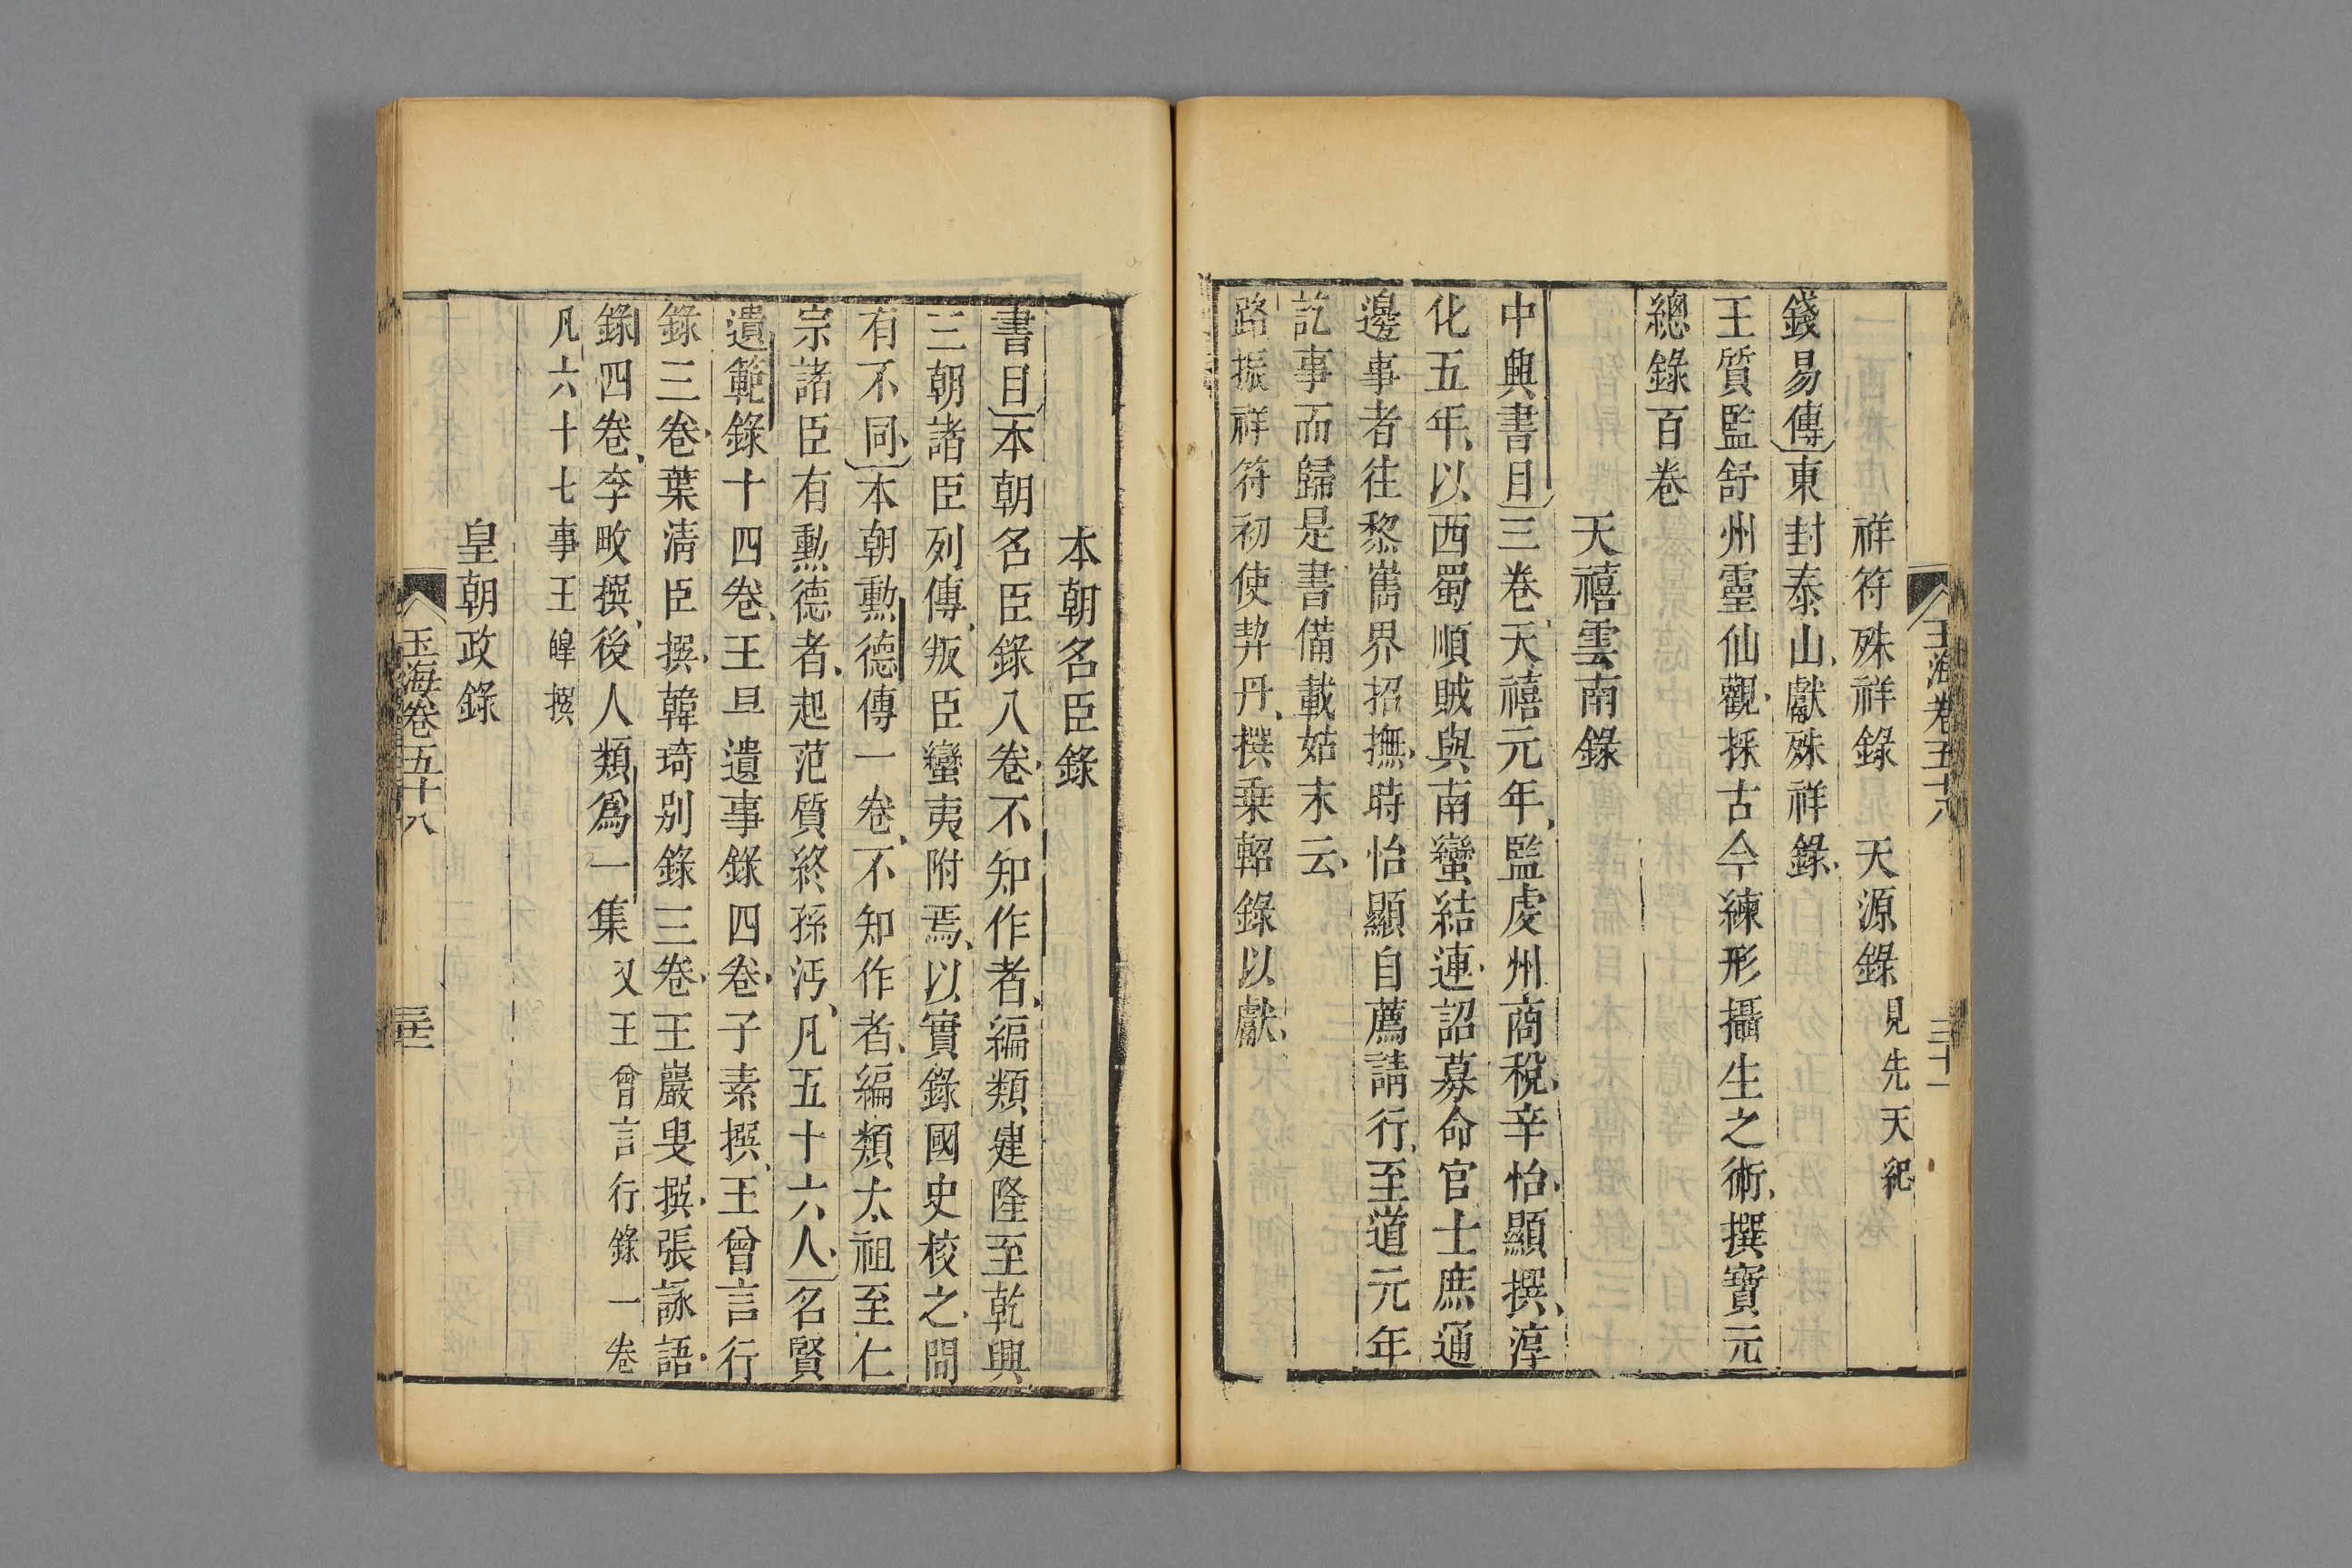 玉海卷五十八
三十一
祥符殊祥錄 天源錄 見先天紀
錢易傳東封泰山獻殊祥錄
王質監舒州靈仙觀採古今練形攝生之術撰寶元
總錄百卷
天禧雲南錄
中興書目三卷天禧元年監虔州商稅辛怡顯撰淳
化五年以西蜀順賊與南蠻結連詔募命官士庶通
邊事者往黎巂界招撫時怡顯自薦請行至道元年
訖事而歸是書備載姑末云
路振祥符初使契丹撰乗軺錄以獻
本朝名臣錄
書目本朝名臣錄八卷不知作者編類建隆至乾興
三朝諸臣列傳叛臣蠻夷附焉以實錄國史校之間
有不同本朝勲德傳一卷不知作者編類太祖至仁
宗諸臣有勲德者起范質終孫沔凡五十六人名賢
遺範錄十四卷王旦遺事錄四卷子素撰王曾言行
錄三卷葉清臣撰韓琦別錄三卷王巖叟撰張詠語
錄四卷李畋撰後人類爲一集 又王曾言行錄一卷
凡六十七事王皥撰
皇朝政錄
玉海卷五十八
三十二